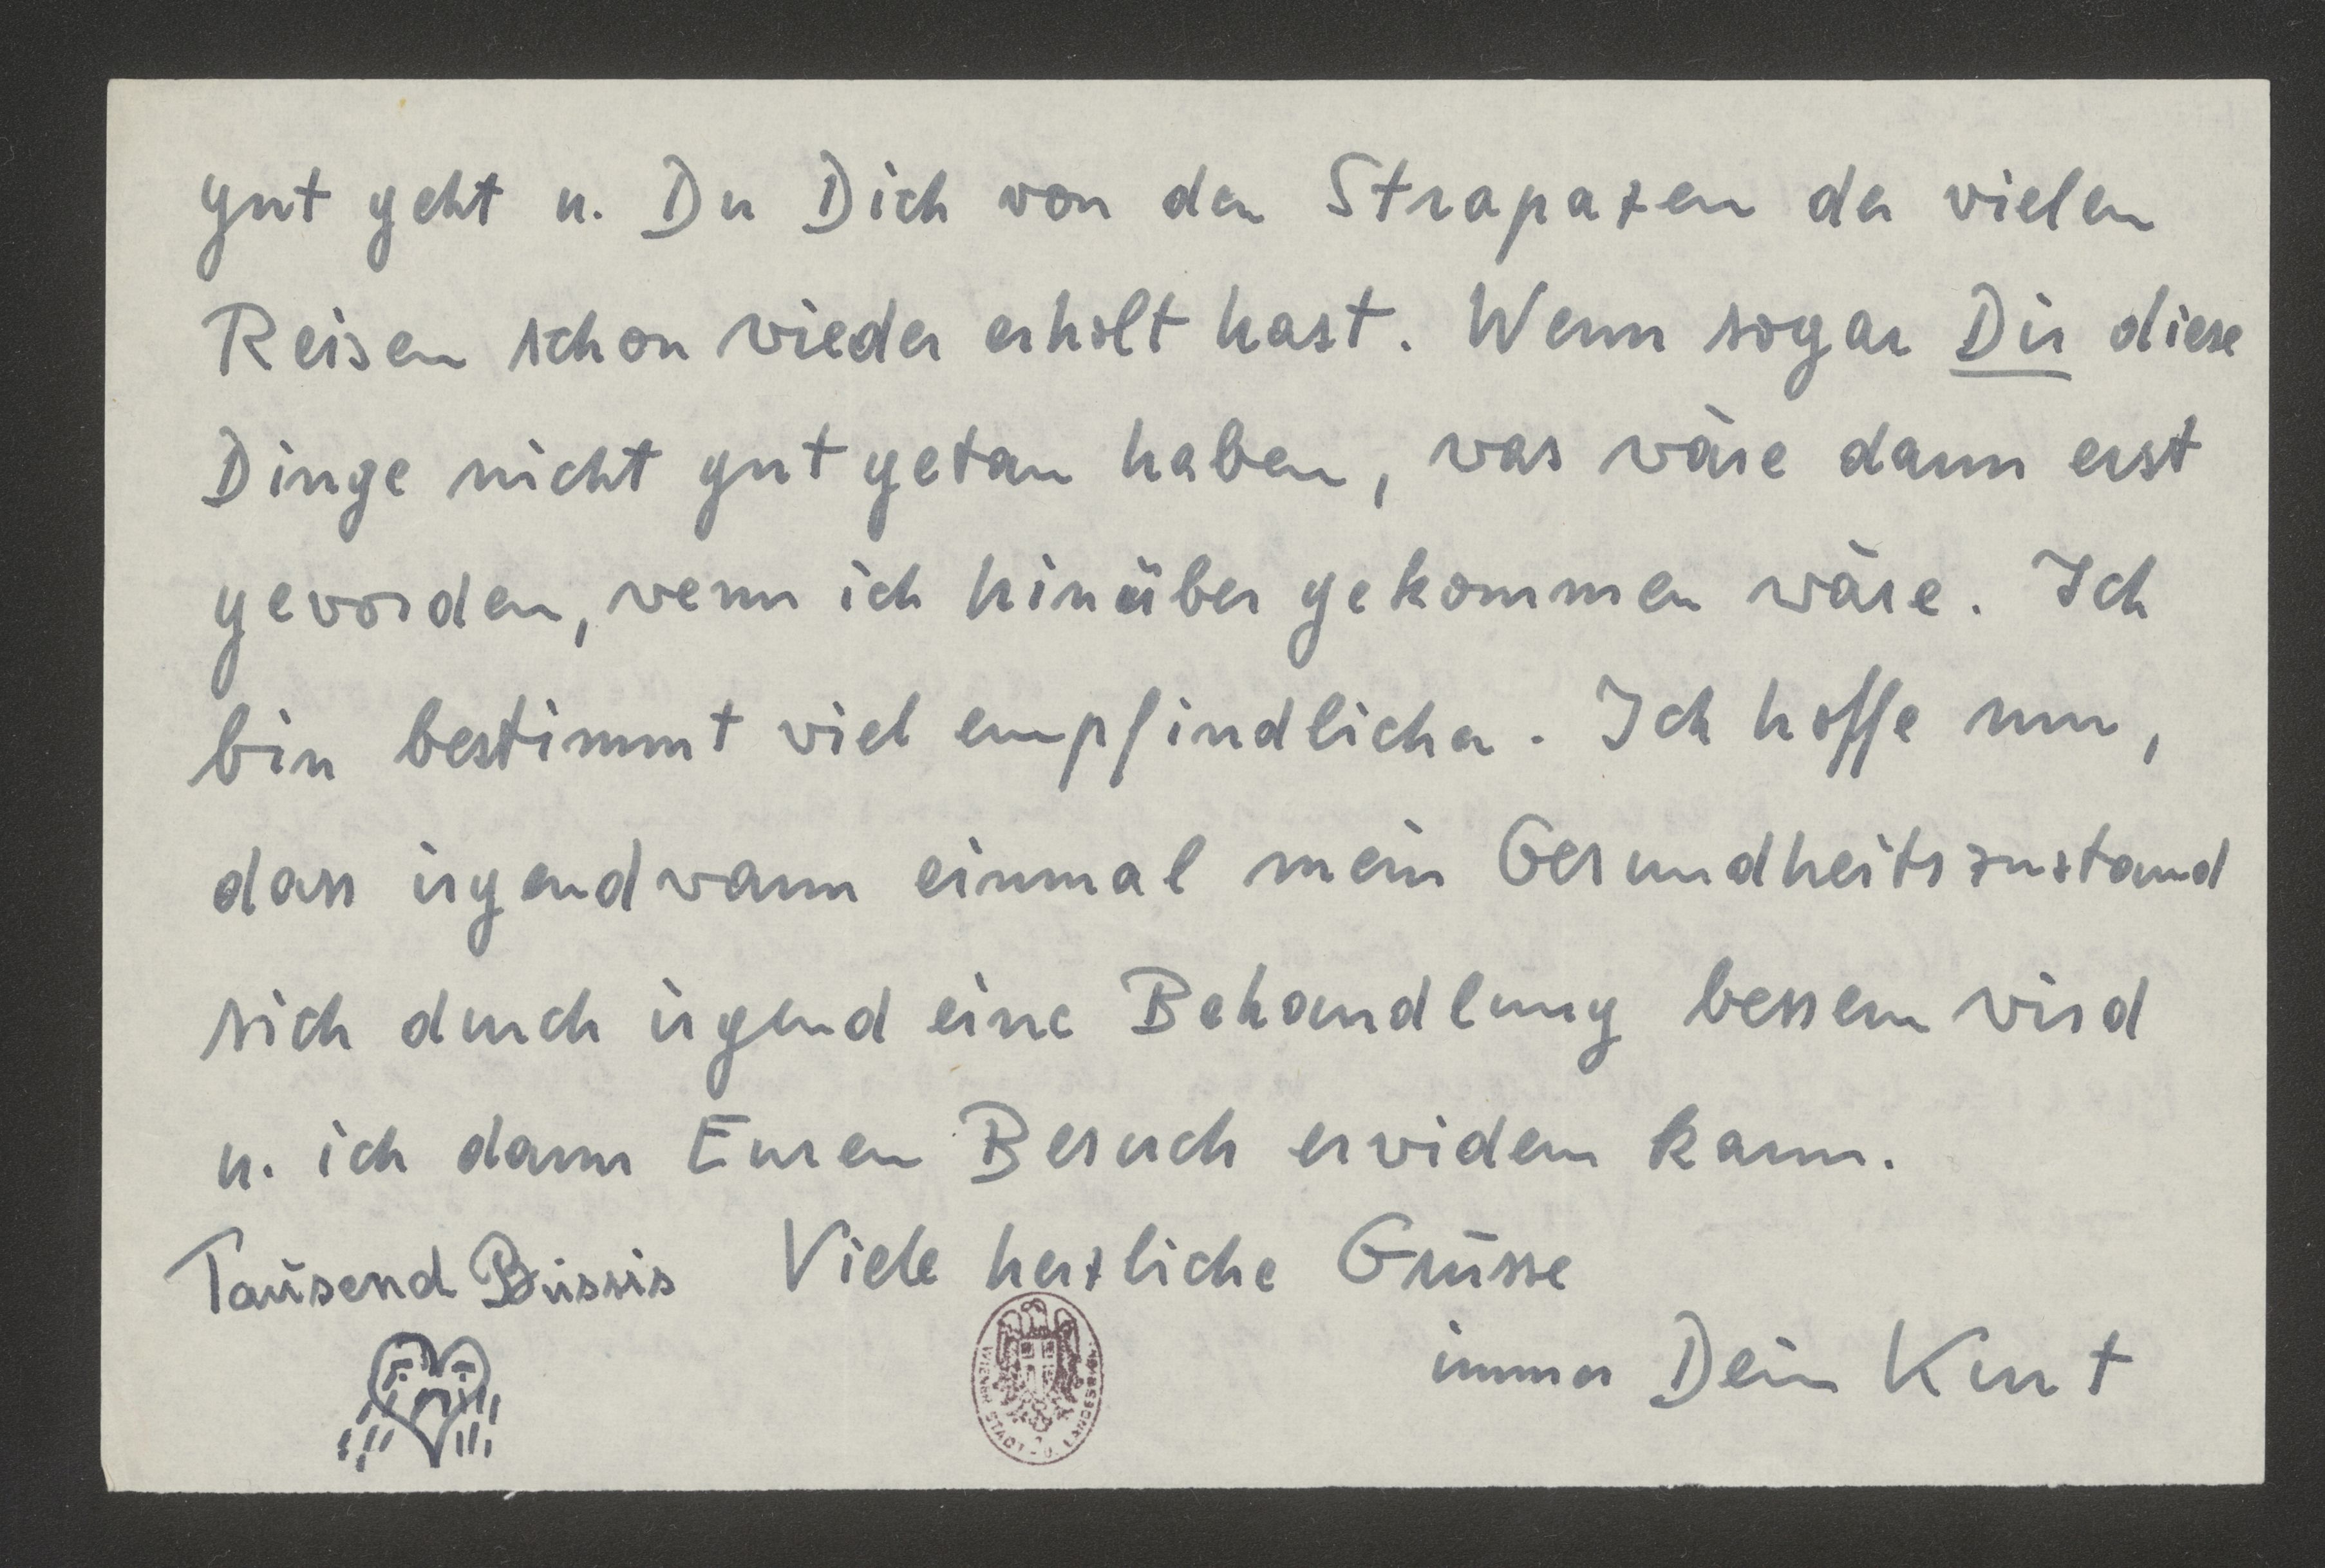 gut geht u. Du Dich von den Strapazen der vielen
Reisen schon wieder erholt hast. Wenn sogar Dir diese
Dinge nicht gut getan haben, was wäre dann erst
geworden, wenn ich hinüber gekommen wäre. Ich
bin bestimmt viel empfindlicher. Ich hoffe nun,
dass irgendwann einmal mein Gesundheitszustand
sich durch irgend eine Behandlung bessern wird
u. ich dann Euren Besuch erwidern kann.
Tausend Bussis Viele herzliche Grüsse
immer Dein Kurt
WIENER STADT- U. LANDESBIBL.